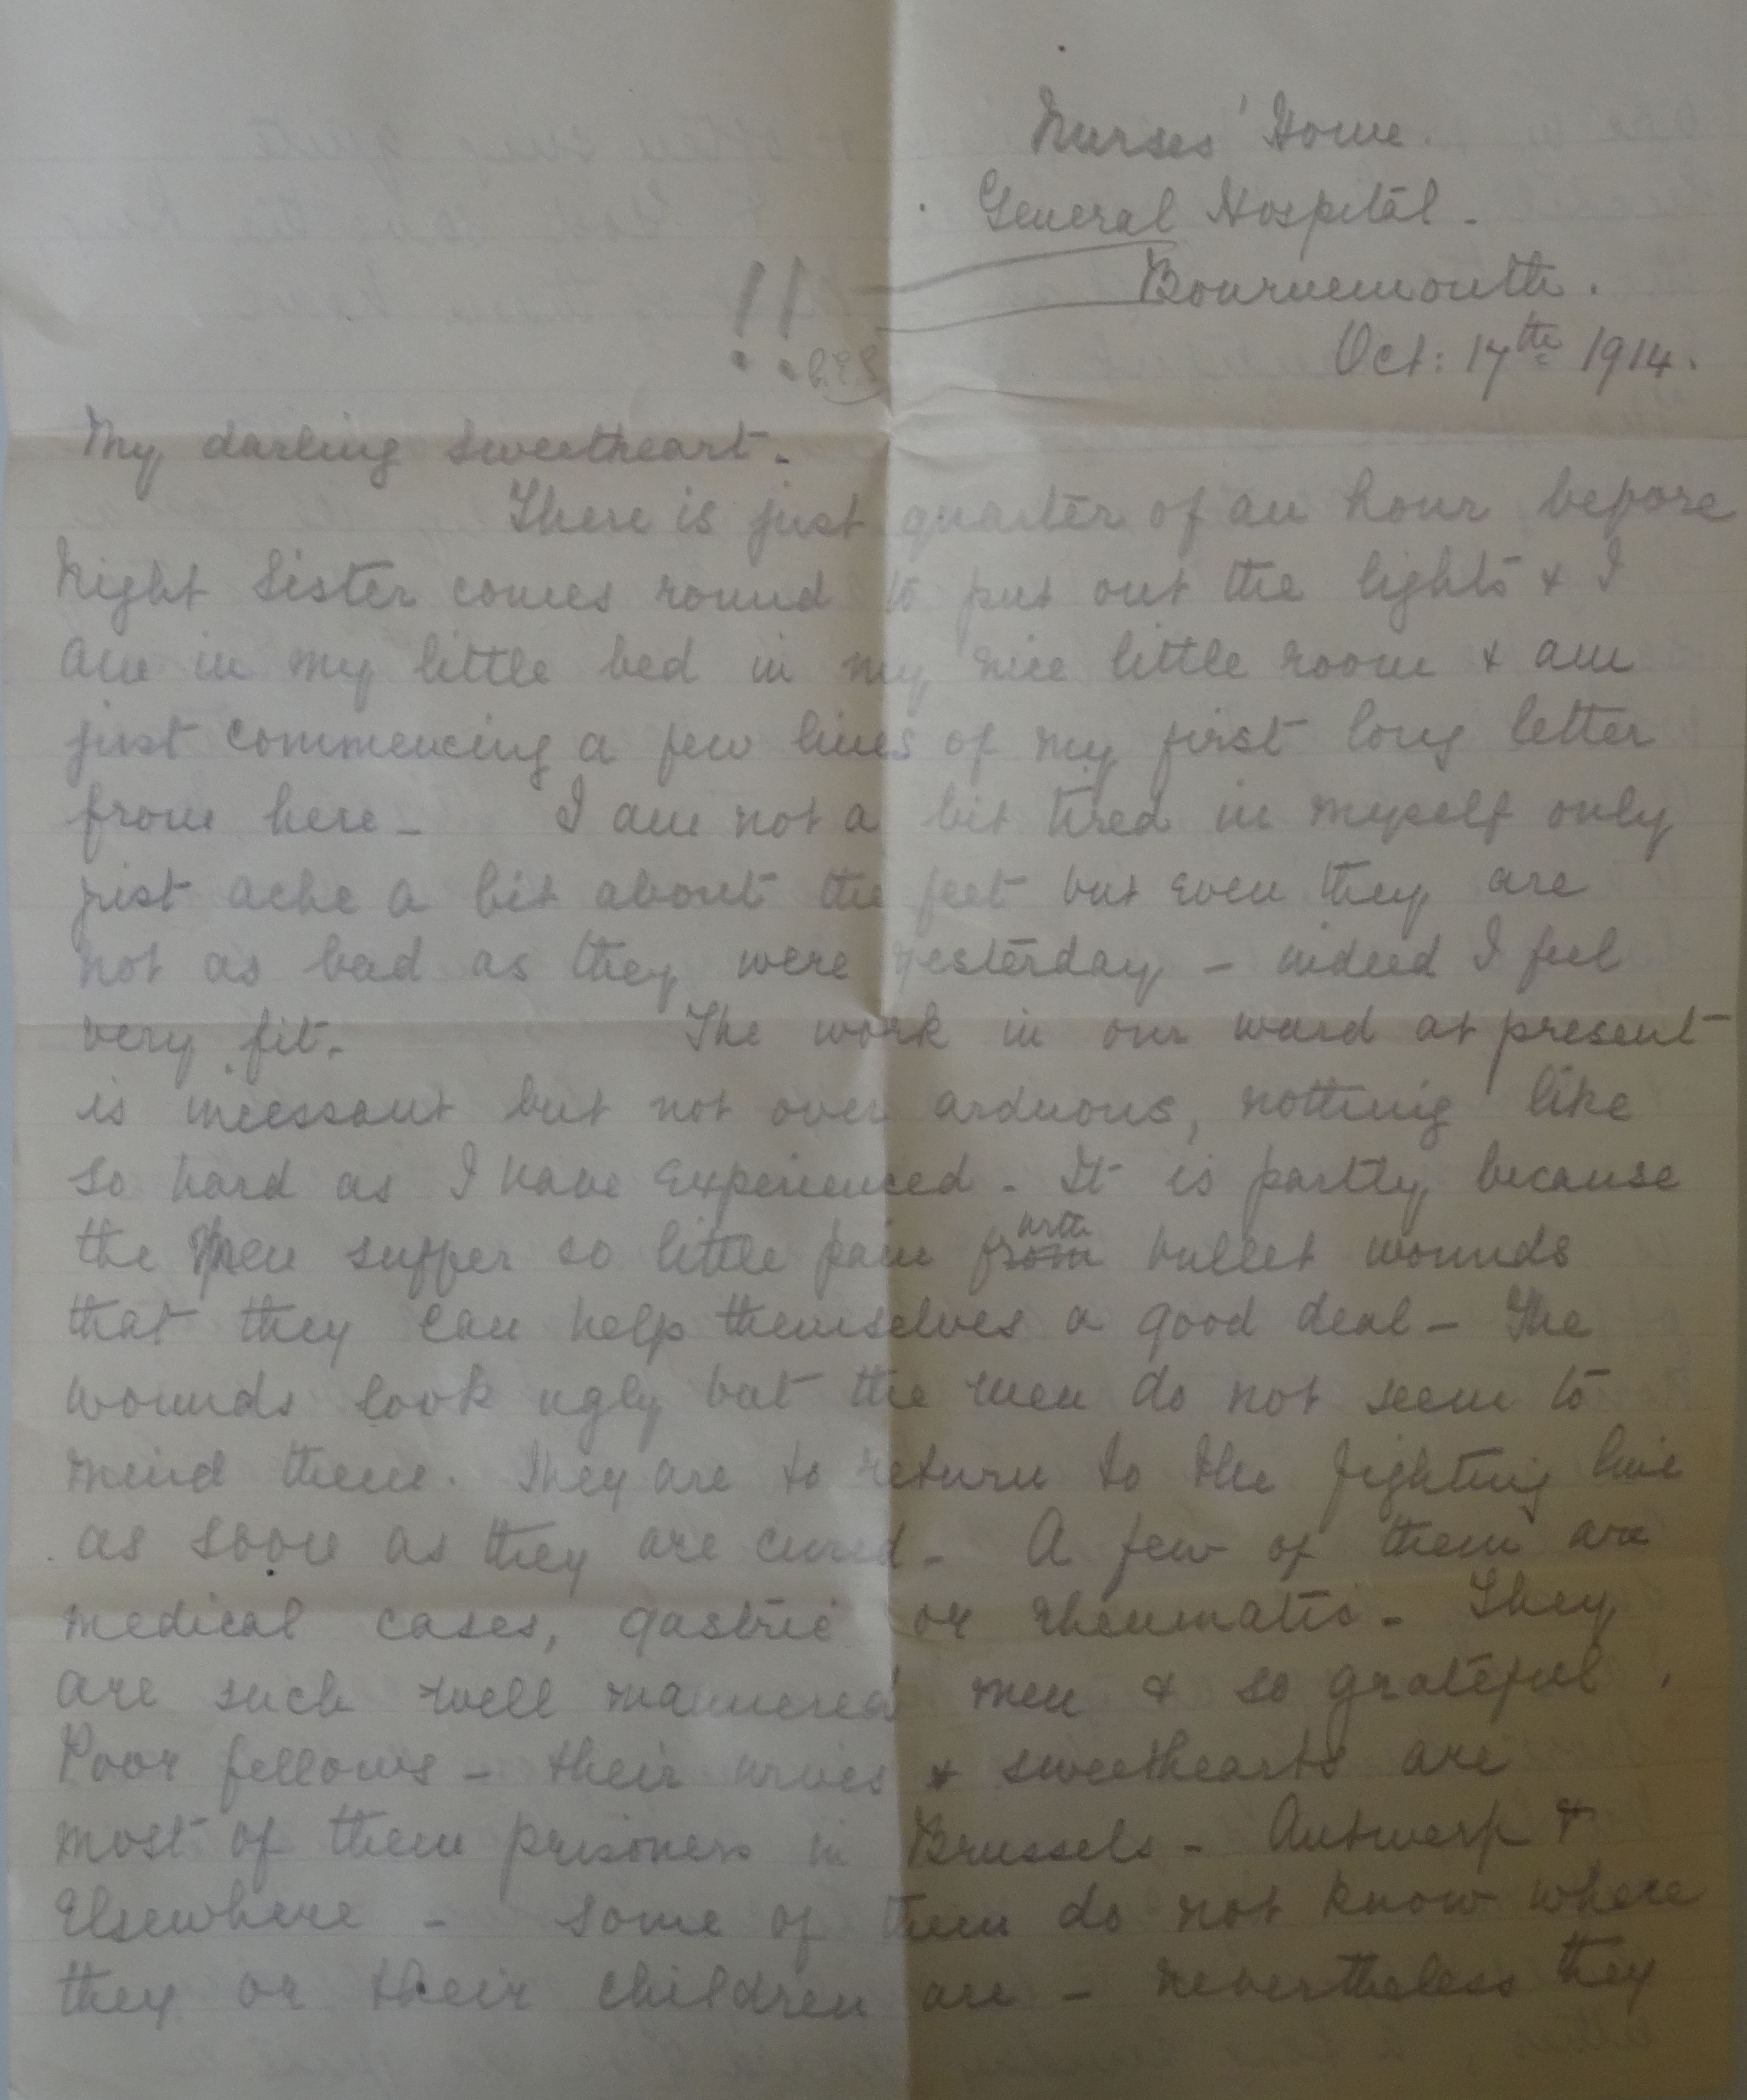 Nurses' Home.
General Hospital -
Bournemouth.
!!
Oct: 17th 1914.
My darling sweetheart -
There is just quarter of an hour before
Night Sister comes round to put out the lights & I
am in my little bed in my nice little room & am
just commencing a few lines of my first long letter
from here - I am not a bit tired in myself only
just ache a bit about the feet but even they are
not as bad as they were yesterday - indeed I feel
very fit. The work in our ward at present
is incessant but not over arduous, nothing like
so hard as I have experienced - It is partly because
the Men suffer so little pain from with bullet wounds
that they can help themselves a good deal - The
wounds look ugly but the men do not seem to
mind them. They are to return to the fighting line
as soon as they are cured - A few of them are
medical cases, gastric or rheumatic - They
are such well mannered men & so grateful.
Poor fellows - their wives & sweethearts are
most of them prisoners in Brussels - Antwerp &
Elsewhere - some of them do not know where
they or their children are - nevertheless they